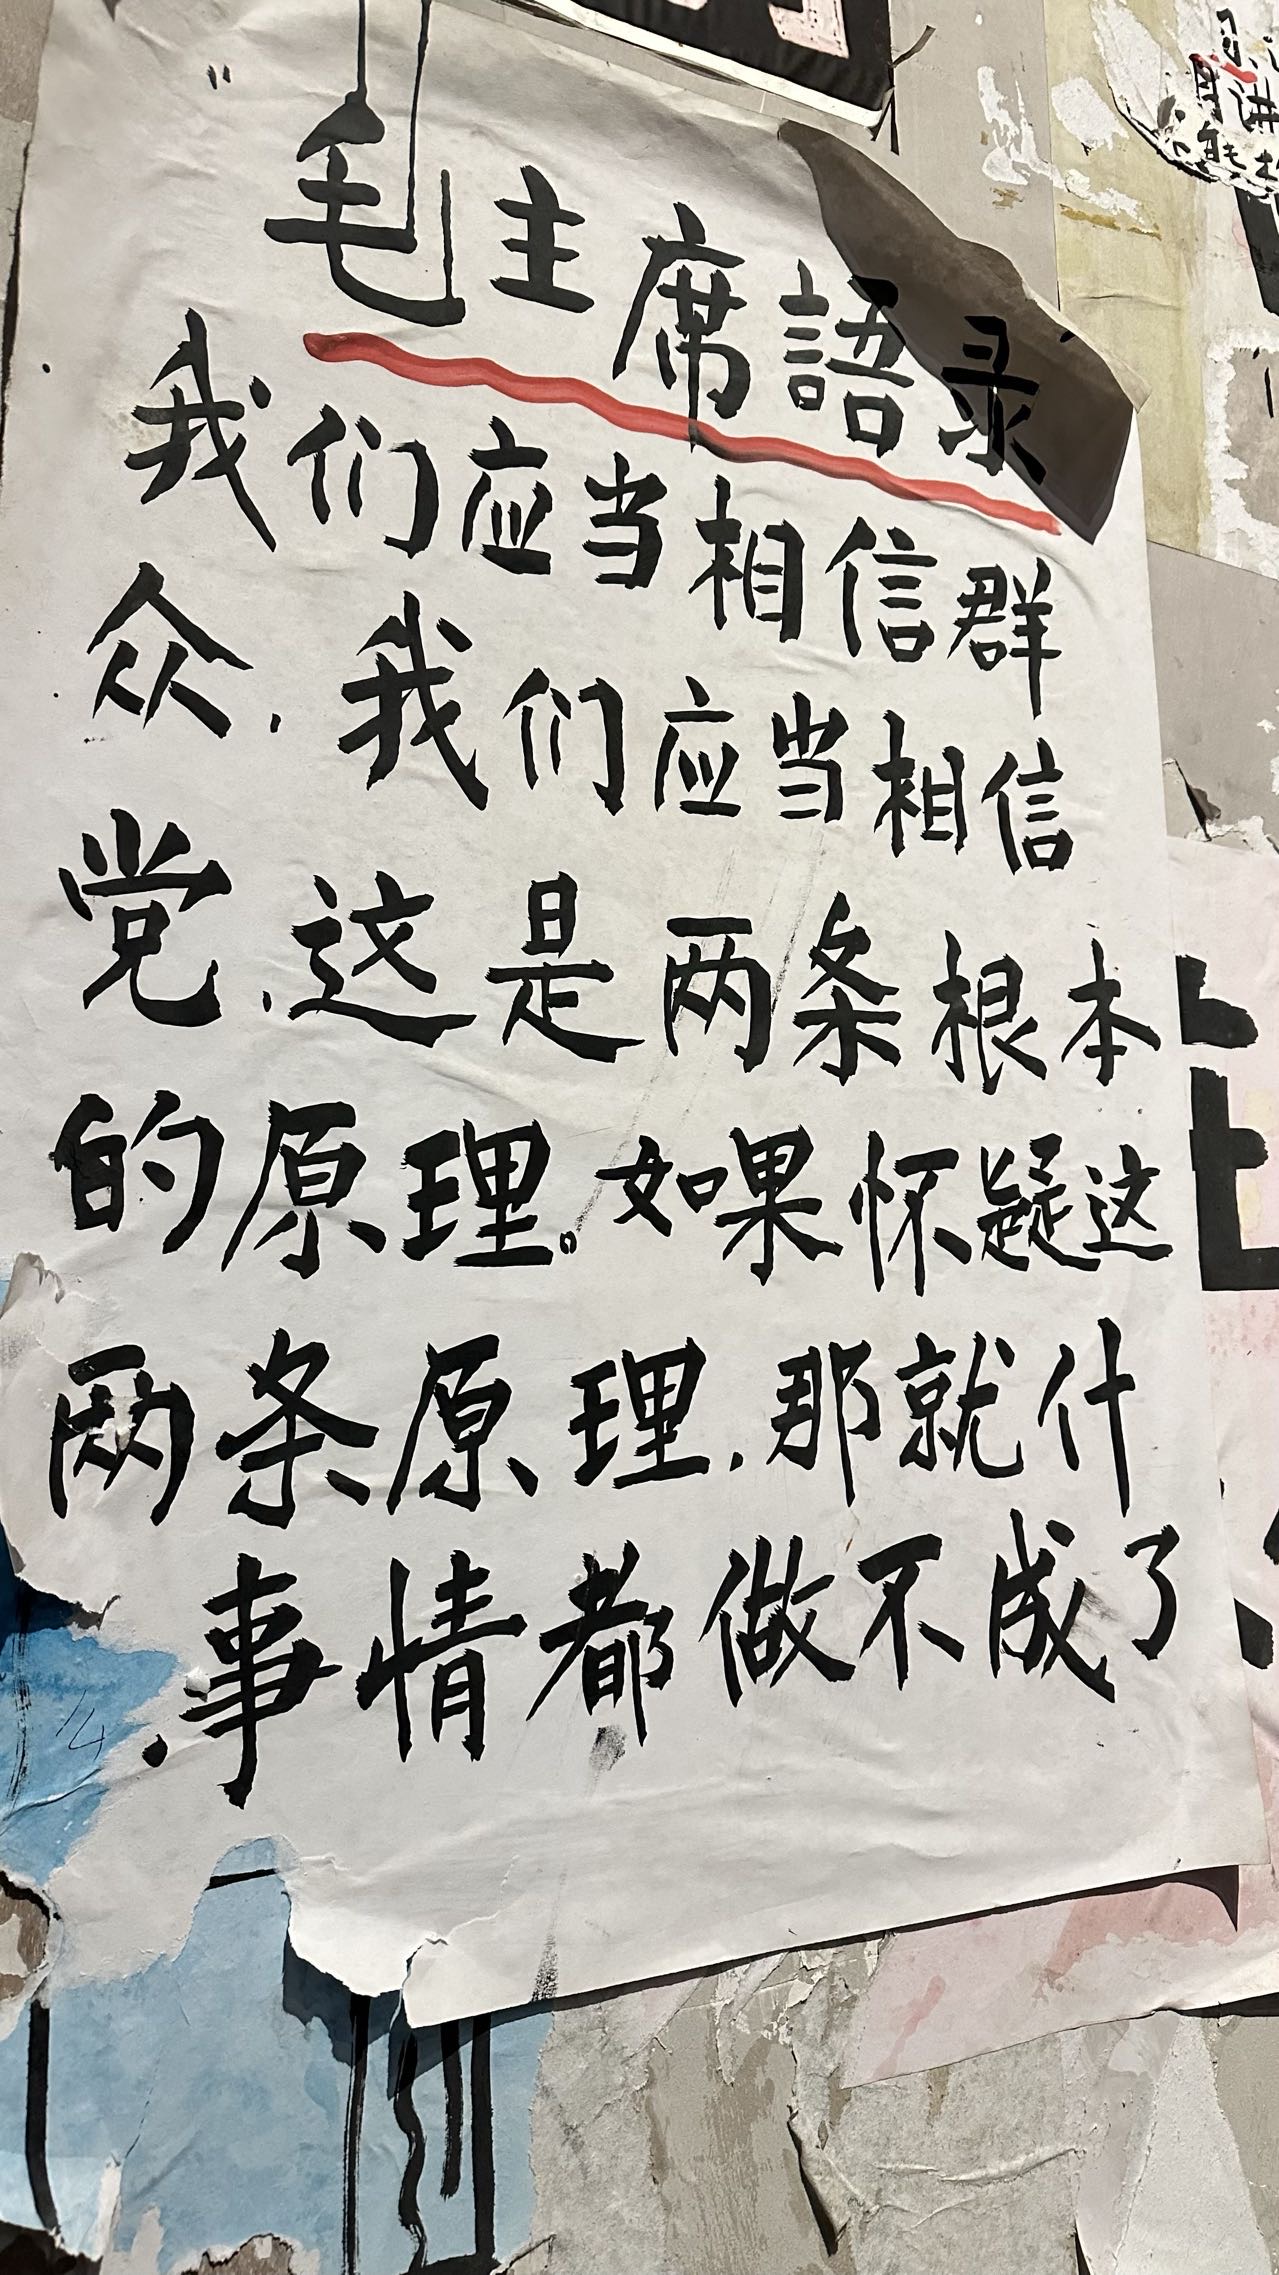 毛主席語录
我们应当相信群
众，我们应当相信
党，这是两条根本
的原理。如果怀疑这
两条原理，那就什
事情都做不成了